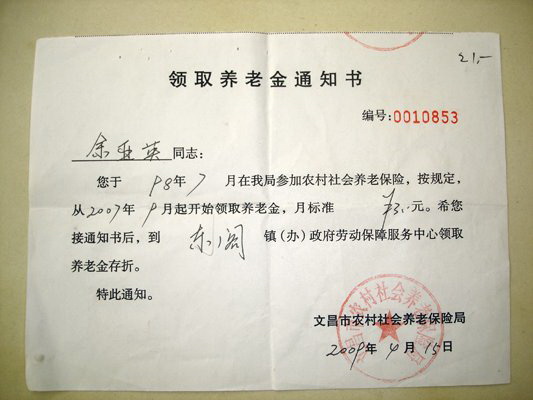 21,-
领取养老金通知书
编号:0010853
余亚英 同志:
您于 98年7月在我局参加农村社会养老保险，按规定，
从2007年9月起开始领取养老金，月标准 元。希您
接通知书后，到 东阁 镇(办)政府劳动保障服务中心领取
养老金存折。
特此通知。
文昌市农村社会养老保险局
2009年4月15日